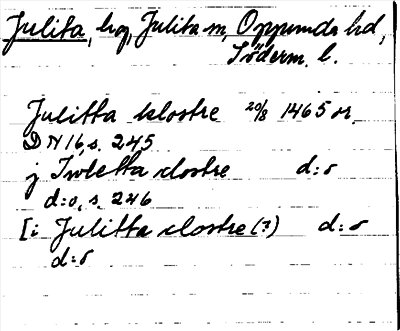 Julita, hg, Julita sn, Oppunda hd,
Söderm. l.
Julitta klostre 20/8 1465 or.
DN 16, s. 245
j Iwletta clostre d:o
d:o, s. 246
[i Julitta clostre (?) d:o
d:o